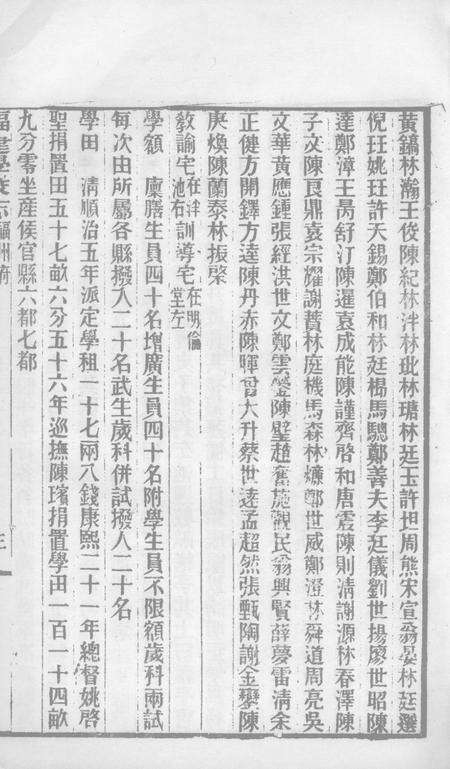 黃鎬林瀚王俊陳紀林泮林玭林瑭林廷玉許坦周熊宋宣翁晏林廷選
倪珏姚珏許天錫鄭伯和林廷㭿馬驄鄭善夫李廷儀劉世揚廖世昭陳
達鄭漳王昺舒汀陳暹袁成能陳謹齊啓和唐震陳則清謝源林春澤陳
子文陳良鼎袁宗耀謝蕡林庭機馬森林爌鄭世威鄭澄林舜道周亮吳
文華黃應鍾張經洪世文鄭雲鎣陳壁趙奮施觀民翁興賢薛夢雷清余
正健方開鐸方逵陳丹赤陳暉曾大升蔡世逵孟超然張甄陶謝金鑾陳
庚煥陳蘭泰林振棨
敎諭宅在泮池右訓導宅在明倫堂左
學額　廩膳生員四十名增廣生員四十名附學生員不限額歲科兩試
每次由所屬各縣撥入二十名武生歲科併試撥入二十名
學田　清順治五年派定學租一十七兩八錢康熙二十一年總督姚啓
聖捐置田五十七畝六分五十六年巡撫陳璸捐置學田一百一十四畝
九分零坐產侯官縣六都七都
福建學校志福州府